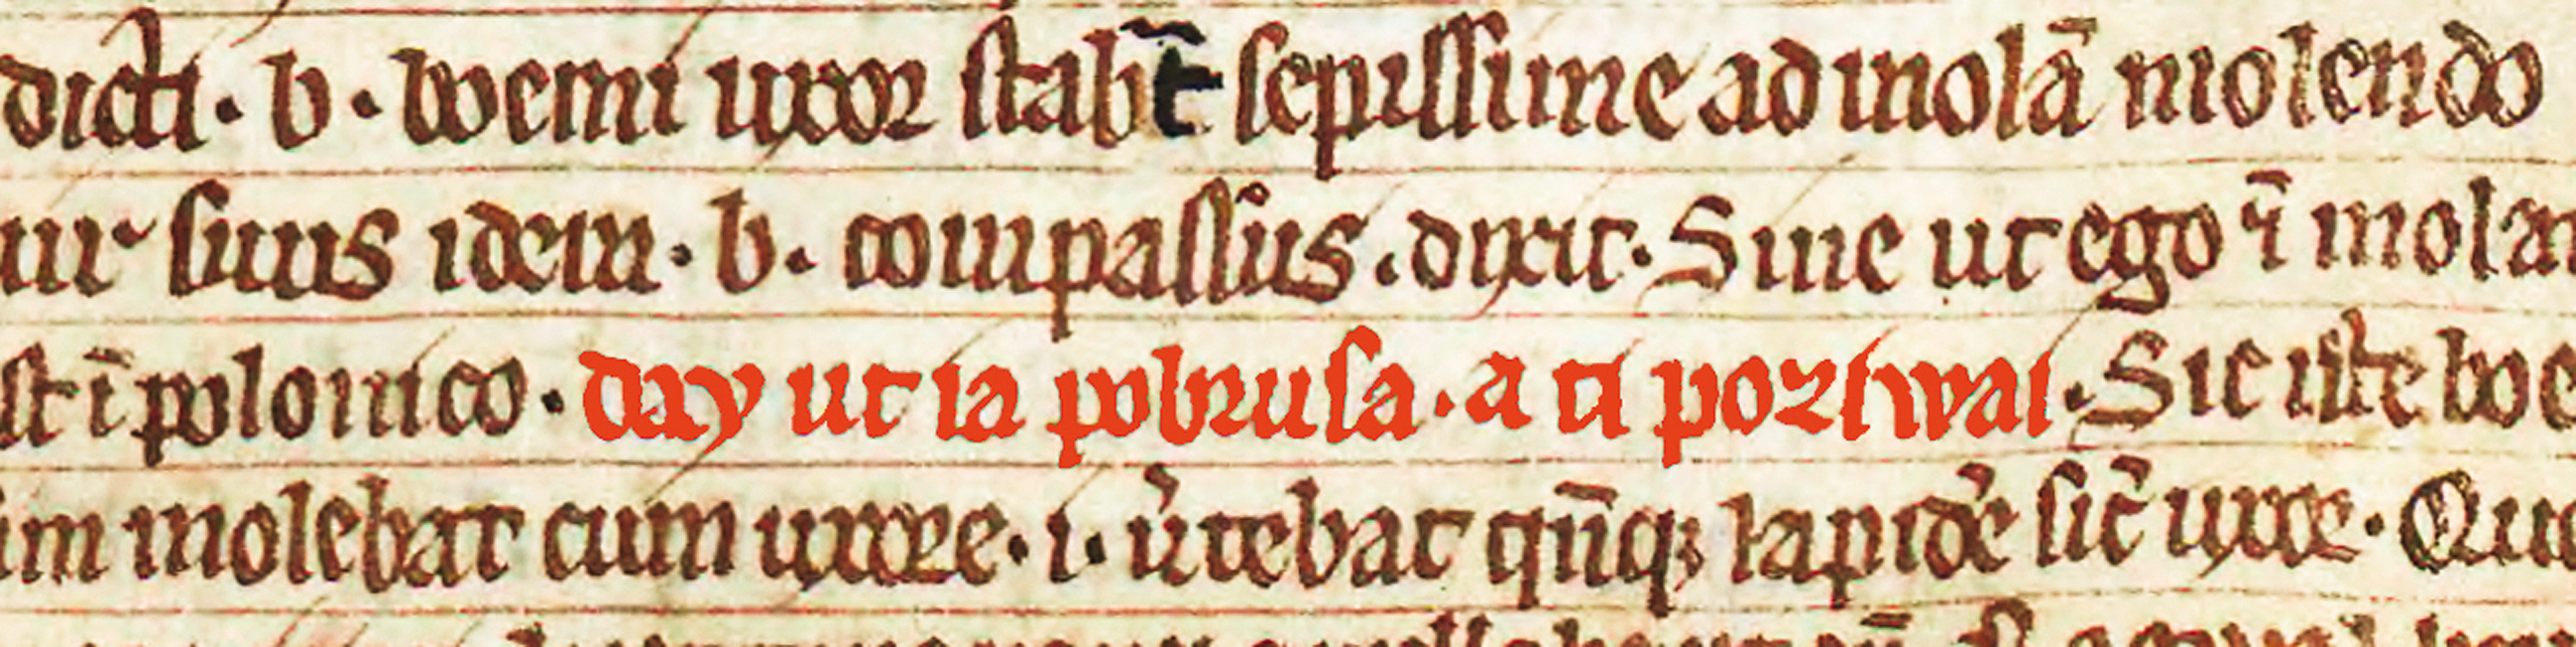 dicti · b · boemi uxor stabat sepissime ad molā molendo
uir suus idem · b · compassus . dixit · Sine ut ego ī molam
st ī polonico · day ut ia pobrusa · a ti poziwai . Sic iste boe
im molebat cum uxore · i · u̓tebat qn̄q; lapidē sic̄ uxore · Quod